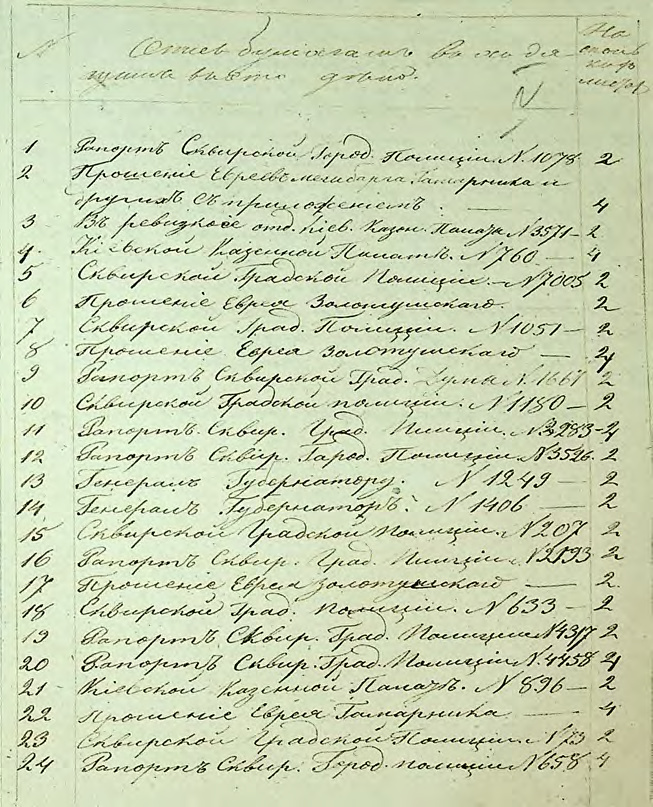 N Опись бумагамъ входя На сколь
щимъ въ сто дѣло. кихъ листахъ
N
1 Рапортъ Сквирской Город. Полиціи N. 1078 2
2 Прошеніе Евреевъ Гамарника и
другихъ съ приложеніемъ. — 4
3 Въ ревизское отд. Кіев. Казен. Палаты N 3571 - 2
4. Кіевской Казенной Палатѣ. N 760 — 4
5 Сквирской Градской Полиціи. — N 7005 2
6 Прошеніе Еврея Золотушскаго. 2
7 Сквирской Град. Полиціи. N 1051 — 2
8 Прошеніе Еврея Золотушскаго — 4
9 Рапортъ Сквирской Град. Думы N. 1661 2
10 Сквирской Градской полиціи. N 1180 — 2
11 Рапортъ. Сквир. Град. Полиціи. N 3283 - 4
12 Рапортъ Сквир. Город. Полиціи N 3526. 2
13 Генералъ Губернатору. N 1249 — 2
14 Генералъ Губернаторъ. N 1406 — 2
15 Сквирской Градской Полиціи. N 207 2
16 Рапортъ Сквир. Град. Полиціи. N 2193 2
17 Прошеніе Еврея Золотушскаго — 2.
18 Сквирской Град. полиціи. N 633 — 2
19 Рапортъ Сквир. Град. Полиціи N 4317 2
20 Рапортъ Сквир. Град. Полиціи N. 4458 4
21 Кіевской Казенной Палатѣ. N 896 — 2
22 Прошеніе Еврея Гамарника — 4
23 Сквирской Градской Полиціи. N 73 2
24 Рапортъ Сквир. Город. полиціи N 658 4